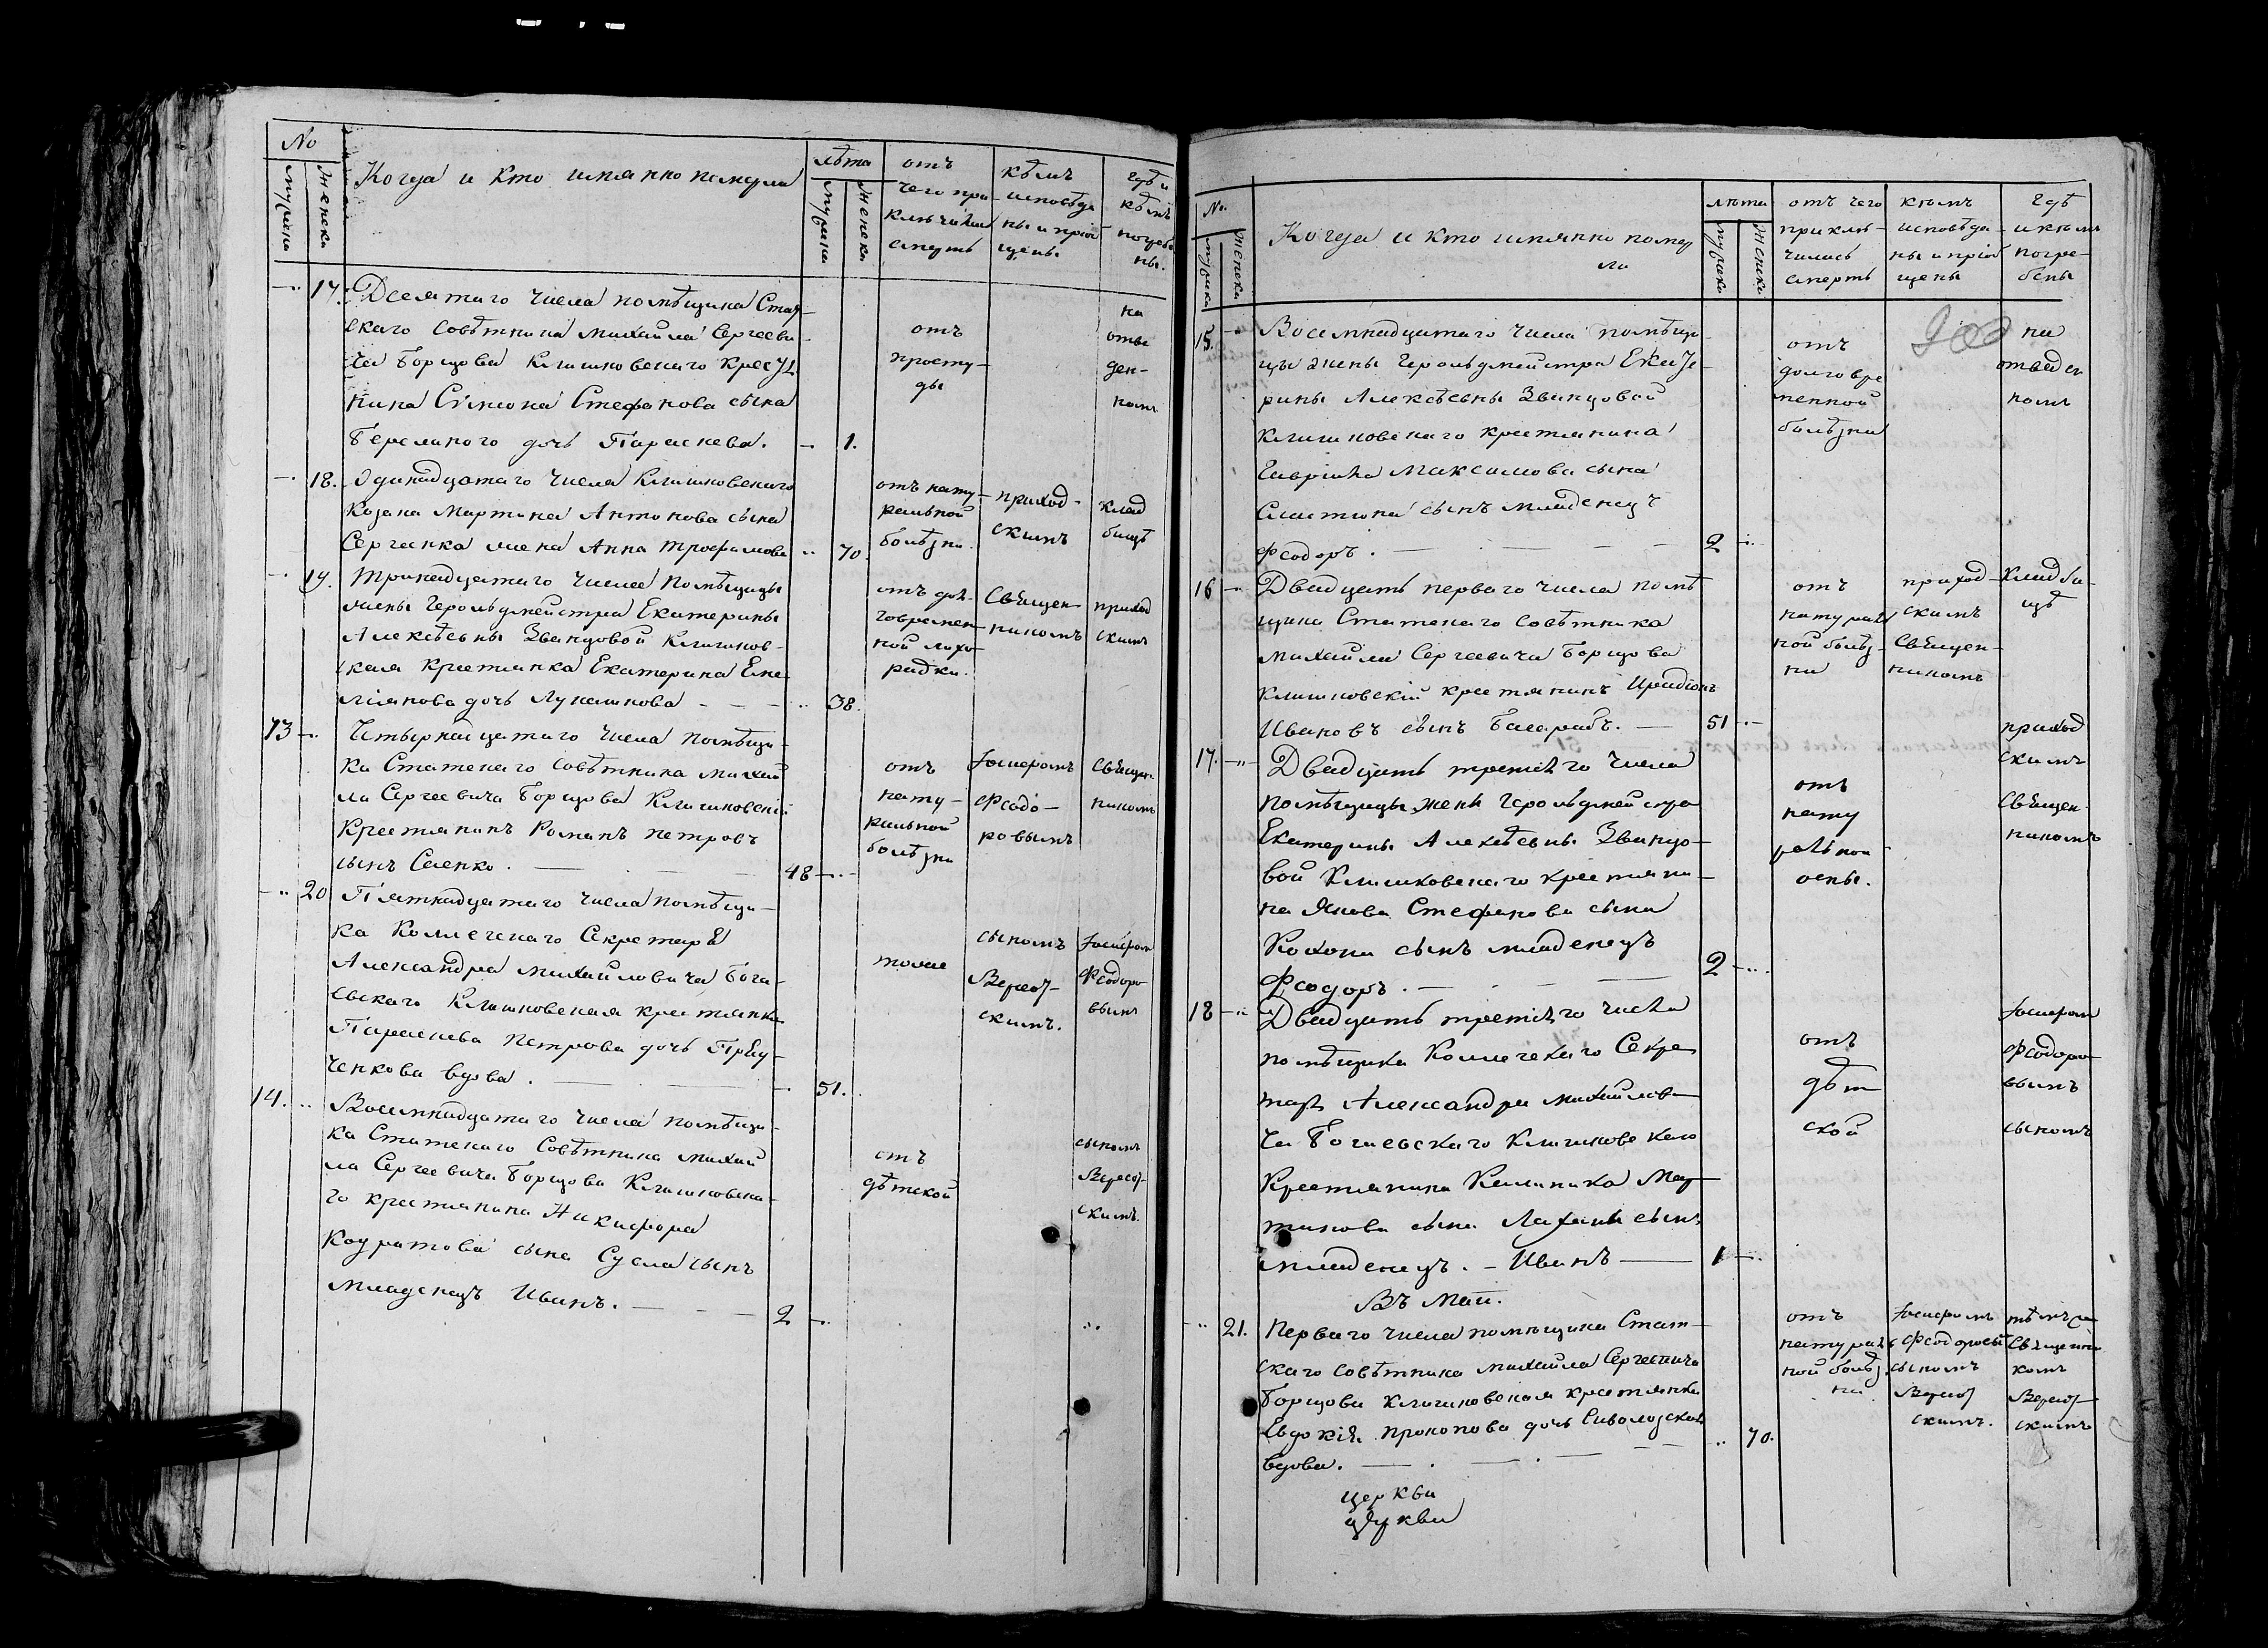 No
мужеска
женска
Когда и кто имянно померли
лѣта
мужеска
женска
отъ
чего при
ключилась
смерть
кѣмъ
исповѣда
ны и пріоб
щены
гдѣ и
кѣмъ
погребе
ны.
17. Десятаго числа помѣщика Стат
скаго совѣтника Михаила Сергееви
ча Борщова Клишковскаго кресть
нина Сѵмеона Стефанова сына
дочь Параскева. 1.
отъ
просту-
ды
на
отве
ден-
номъ
18. Одинадцатаго числа Клишковскаго
козака Мартина Антонова сына
Сергіенка жена Анна Трофимова 70
отъ нату-
ральной
болѣзни.
приход-
скимъ
клад
бищѣ
19. Тринадцатаго числа помѣщицы
жены Герольдмейстра Екатерины
Алексѣевны Званцовой Клишков-
ская крестянка Екатерина Еме
ліянова дочь Лукашкова 38.
отъ дол-
говремен-
ной лихо-
радки.
Священ-
никомъ
приход
скимъ
13 Четырнадцатаго числа помѣщи-
ка Статскаго совѣтника Михаи
ла Сергеевича Борщова Клишковскій
крестянинъ Романъ Петровъ
сынъ Саенко. 48
отъ
нату-
ральной
болѣзни
Іосифомъ
Федо-
ровымъ
Священ-
никомъ
20 Пятнадцатаго числа помѣщи-
ка Коллегскаго Секретаря
Александра Михайловича Бога-
евскаго Клишковская крестянка
Параскева Петрова дочь
ченкова вдова. 51.
тоже
сыномъ
Верес-
скимъ.
Іосифомъ
Федоро
вымъ
14. Восемнадцатаго числа помѣщи-
ка Статскаго Совѣтника Михаи
ла Сергеевича Борщова Клишковска-
го крестянина Никифора
Кодратова сына Сусла сынъ
младенецъ Иванъ. 2
отъ
дѣтской
сыномъ
Верес-
скимъ.
No.
мужеска
женска
Когда и кто имянно помер
ли
лѣта
мужеска
женска
отъ чего
приклю-
чилась
смерть
кѣмъ
исповѣда-
ны и пріоб
щены
гдѣ
и кѣмъ
погре-
бены
15. Восемнадцатаго числа помѣщи-
цы жены Герольдмейстра Екате-
рины Алексѣевны Званцовой
Клишковскаго крестянина
Гавріила Максимова сына
сынъ младенецъ
Феодоръ. 2
отъ
долговре
менной
болѣзни
на
отведен
номъ
16 Двадцать перваго числа помѣ
щика Статскаго совѣтника
Михайла Сергеевича Борщова
Клишковскій крестянинъ Иродіонъ
Ивановъ сынъ Басарабъ. 51
отъ
натураль
ной болѣз-
ни
приход-
скимъ
Священ-
никомъ
кладби-
щѣ
17. Двадцать третяго числа
помѣщицы жены Герольдмейстра
Екатерины Алексѣевны Званцо-
вой Клишковскаго крестяни-
на Якова Стефанова сына
Кохона сынъ младенецъ
Феодоръ. 2
отъ
нату
ральной
оспы.
приход
скимъ
Священ-
никомъ
18 Двадцать третяго числа
помѣщика Коллегскаго Секре
таря Александра Михайлови
ча Богаевскаго Клишковскаго
крестянина Калиника Мар
тинова сына сынъ
младенецъ. - Иванъ 1
отъ
дѣт
ской
Іосифомъ
Федоро-
вымъ
сыномъ
Въ Маи.
21. Перваго числа помѣщика Стат-
скаго совѣтника Михаила Сергеевича
Борщова Клишковская крестянка
Евдокія Прокопова дочь
вдова. 70.
отъ
натураль
ной болѣз
ни
Іосифомъ
Федоровы
сыномъ
Верес
скимъ.
тѣмъ же
Священни
комъ
Верес-
скимъ
церкви
церкви